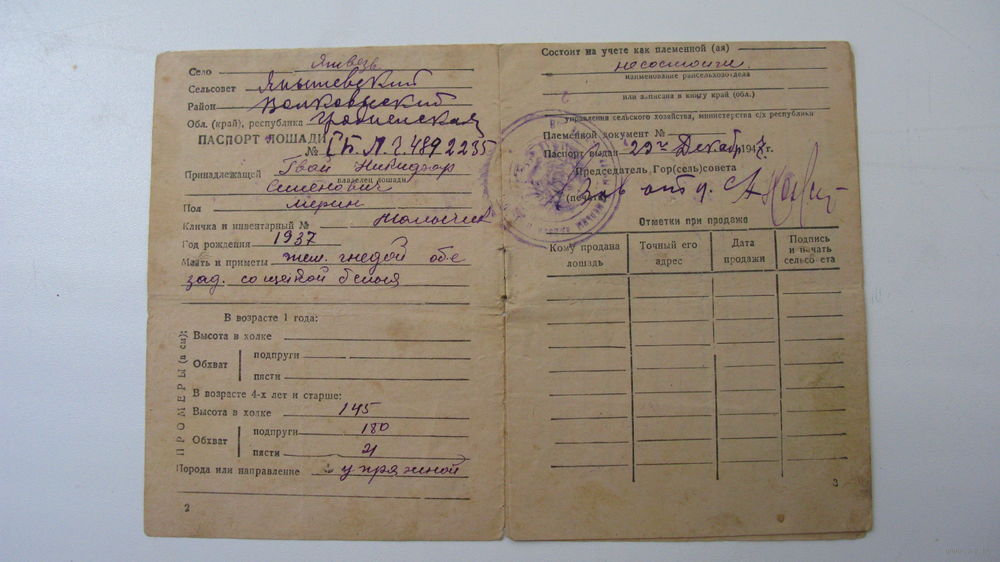 Село
Сельсовет
Район Волковыский
Обл. (край), республика Гродненская
ПАСПОРТ ЛОШАДИ
№
Принадлежащей Гвай Никифор
владелец лошади
Семенович
Пол мерин
Кличка и инвентарный №
Год рождения 1937
Масть и приметы тем. гнедой обе
зад. со щеткой белые
ПРОМЕРЫ (в см):
В возрасте 1 года:
Высота в холке
Обхват
подпруги
пясти
В возрасте 4-х лет и старше:
Высота в холке 145
Обхват
подпруги 180
пясти 21
Порода или направление упряжной
2
Состоит на учете как племенной (ая)
не состоит
наименование райсельхозотдела
или записана в книгу край (обл.)
управления сельского хозяйства, министерства с/х республики
Племенной документ №
Паспорт выдан 29 Декабр 194 г.
Председатель Гор(сель)совета
(печать)
Отметки при продаже
Кому продана лошадь
Точный его адрес
Дата продажи
Подпись и печать сельсовета
3